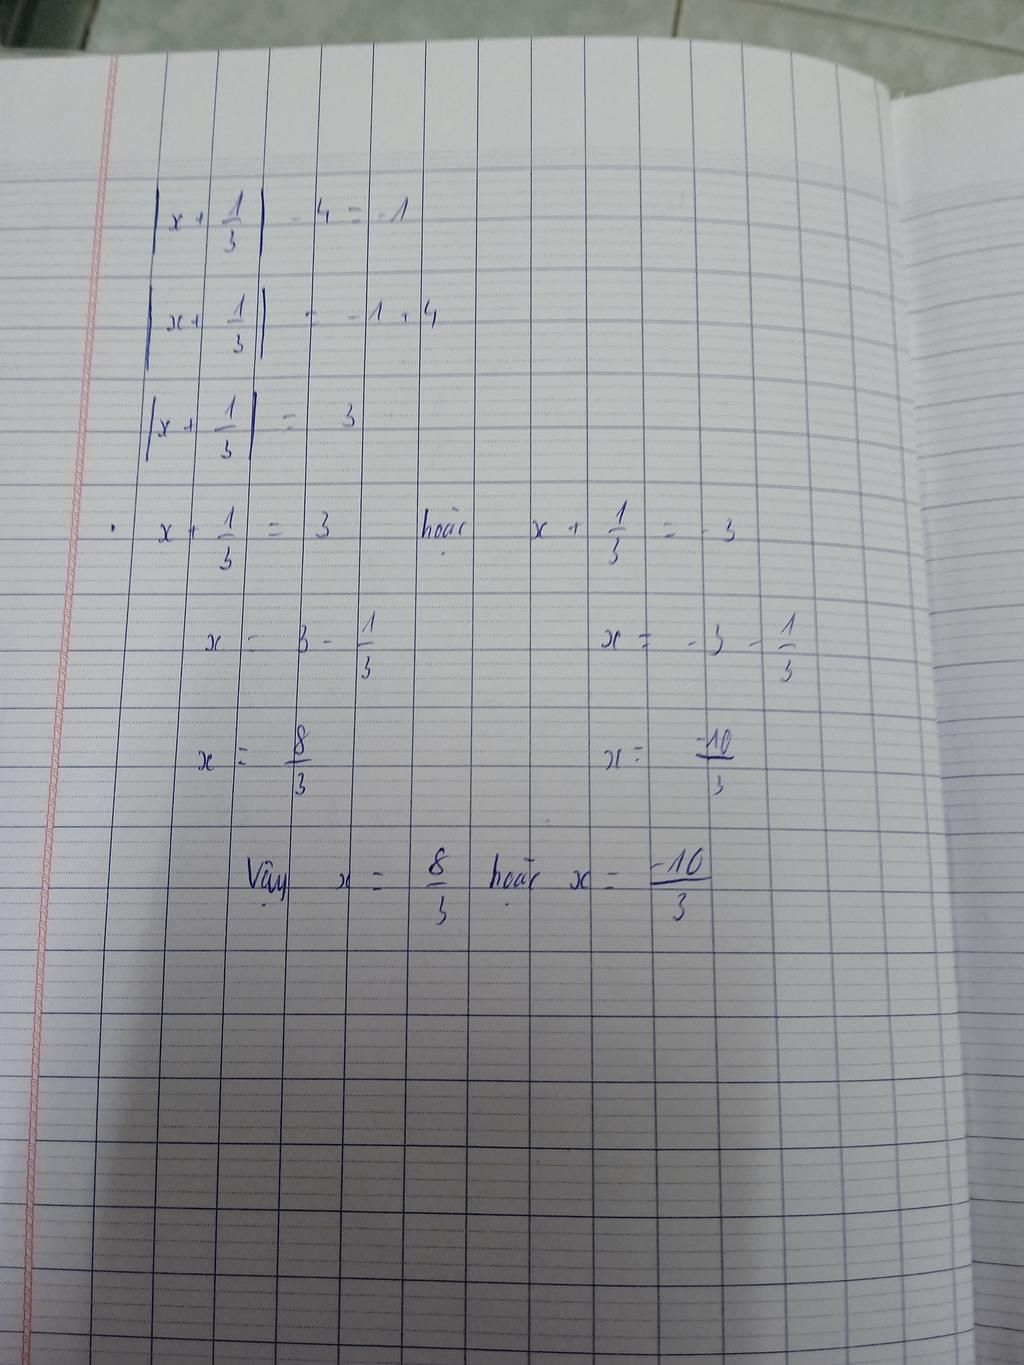 |x + 1/3| - 4 = -1
|x + 1/3| = -1 + 4
|x + 1/3| = 3
x + 1/3 = 3 hoặc x + 1/3 = -3
x = 3 - 1/3 x = -3 - 1/3
x = 8/3 x = -10/3
Vậy x = 8/3 hoặc x = -10/3